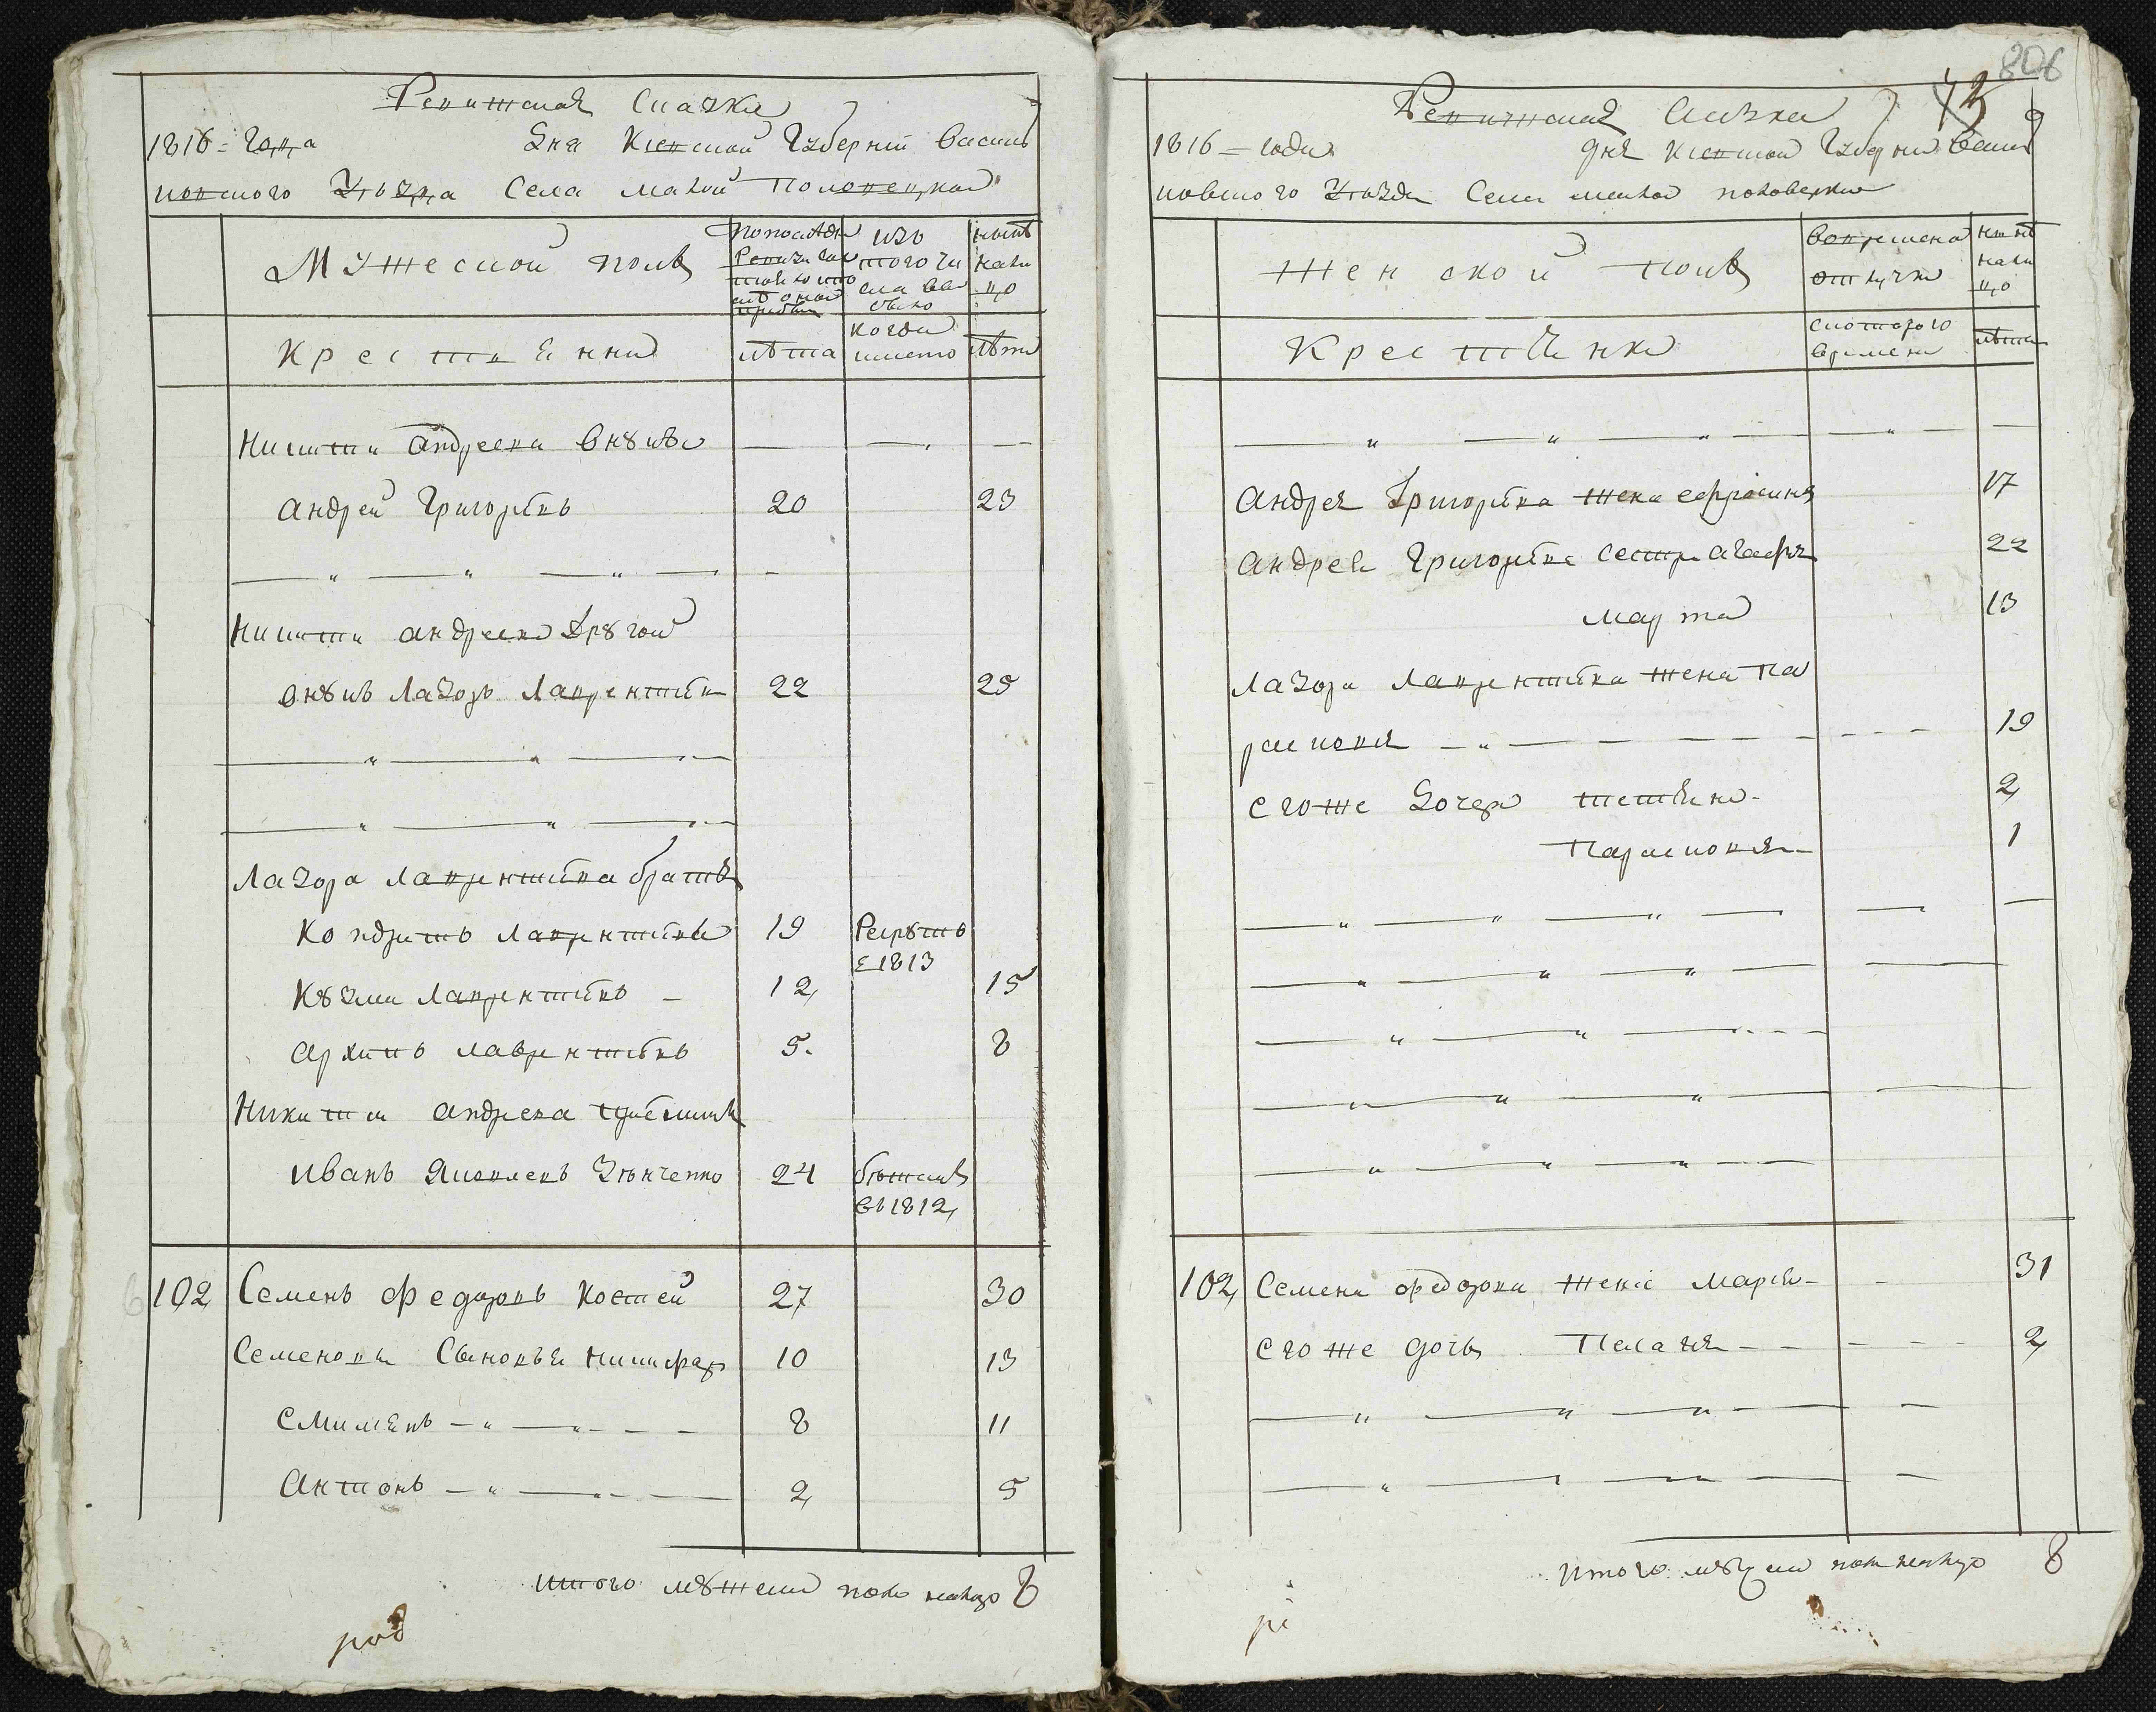 Ревижская Сказка
1816 = года Дня Киевской Губернїи Василь
ковского Уѣзда Села малой Половецкой
Мужеской полъ
по последн
Ревизїи
состояло и
после оной
прибыло
изъ
того чи
сла вы
было
нынѣ
нали
цо
Крестьянни
лѣта
когда
имено
лѣта
Никиты андреева внукъ
андрей Григорїевъ 20 23
Никиты андреева другой
внукъ Лазоръ Лаврентїевъ 22 25
Лазора Лаврентїева братья
Кондратъ Лаврентїевъ 19 Рекрутъ
в 1813
Кузма Лаврентїевъ 12 15
архипъ лаврентїевъ 5. 8
Никиты андреева
иванъ Яковлевъ Зѣнченко 24 бѣжалъ
въ 1812
102 Семенъ Федоровъ Костей 27 30
Семеновы Сыновья никифоръ 10 13
Симиѧнъ 8 11
Антонъ 2 5
итого мужеска полу налицо 8
806
Ревижская Сказка
1816 = года дня Киевской Губернии Василь
ковского Уѣзда Села малой половецкой
Женской полъ
во времена
отлучки
нынѣ
нали
цо
Крестьянки
с которого
времени
лѣта
андрея Григорїева жена ефросиня 17
андрея Григорїева сестра агафия 22
марта 13
Лазора Лаврентїева жена Па
расковия 19
егоже дочери тетїяна 2
Парасковия 1
102 Семена федорова жена марїя 31
егоже дочь Пелагия 2
итого полу налицо 8